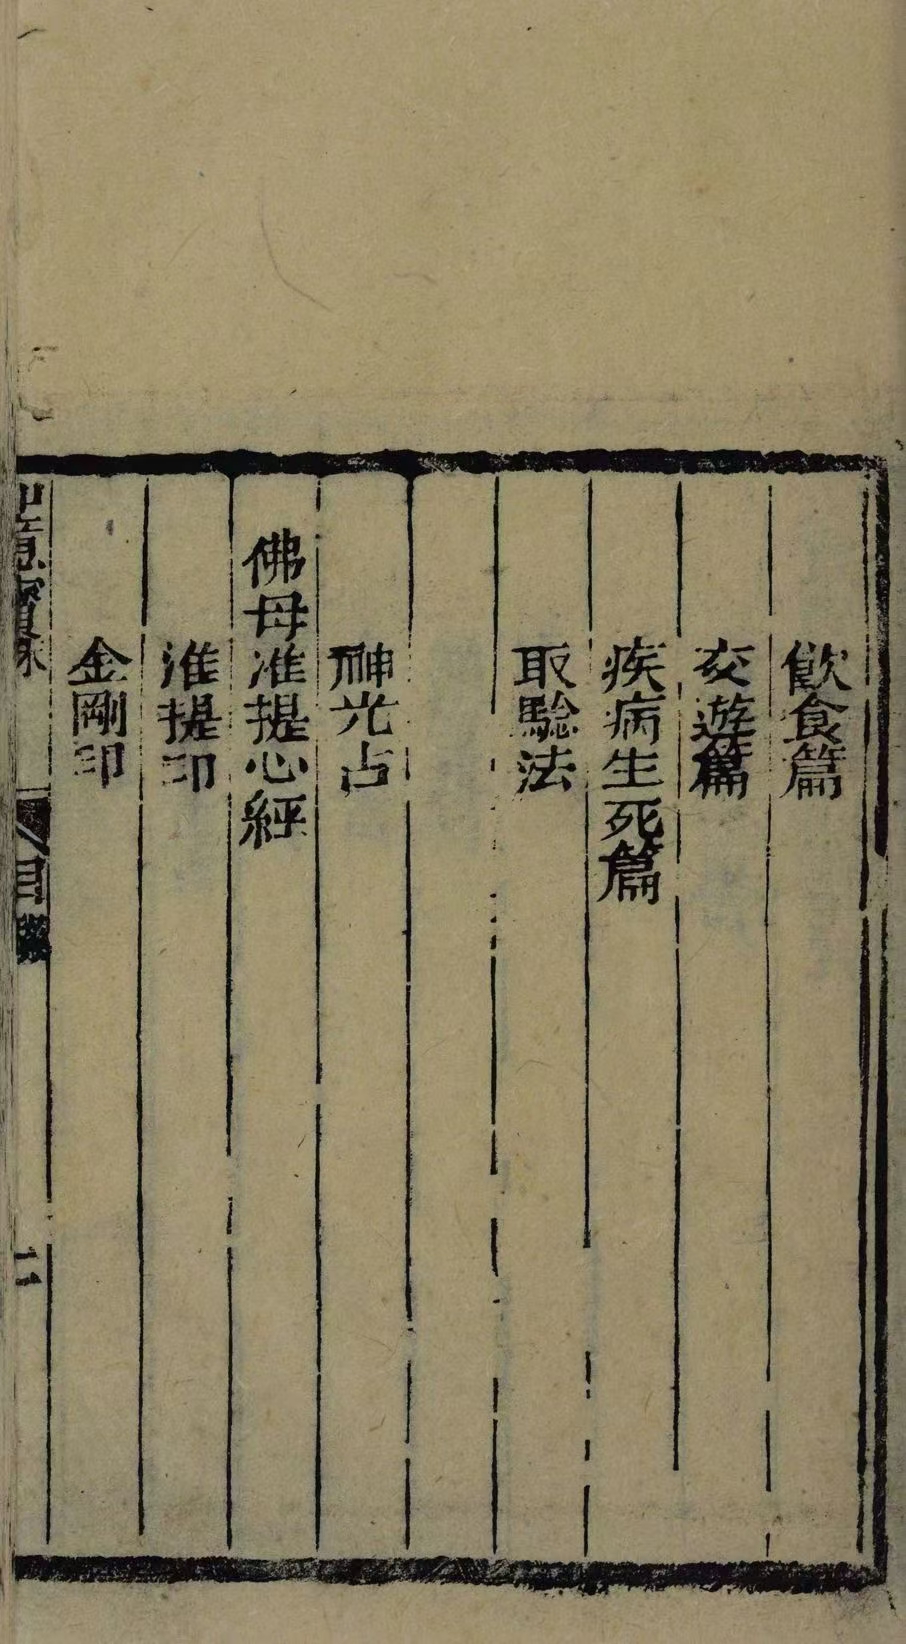 飲食篇
交遊篇
疾病生死篇
取驗法
神光占
佛母准提心經
准提印
金剛印
目錄
二